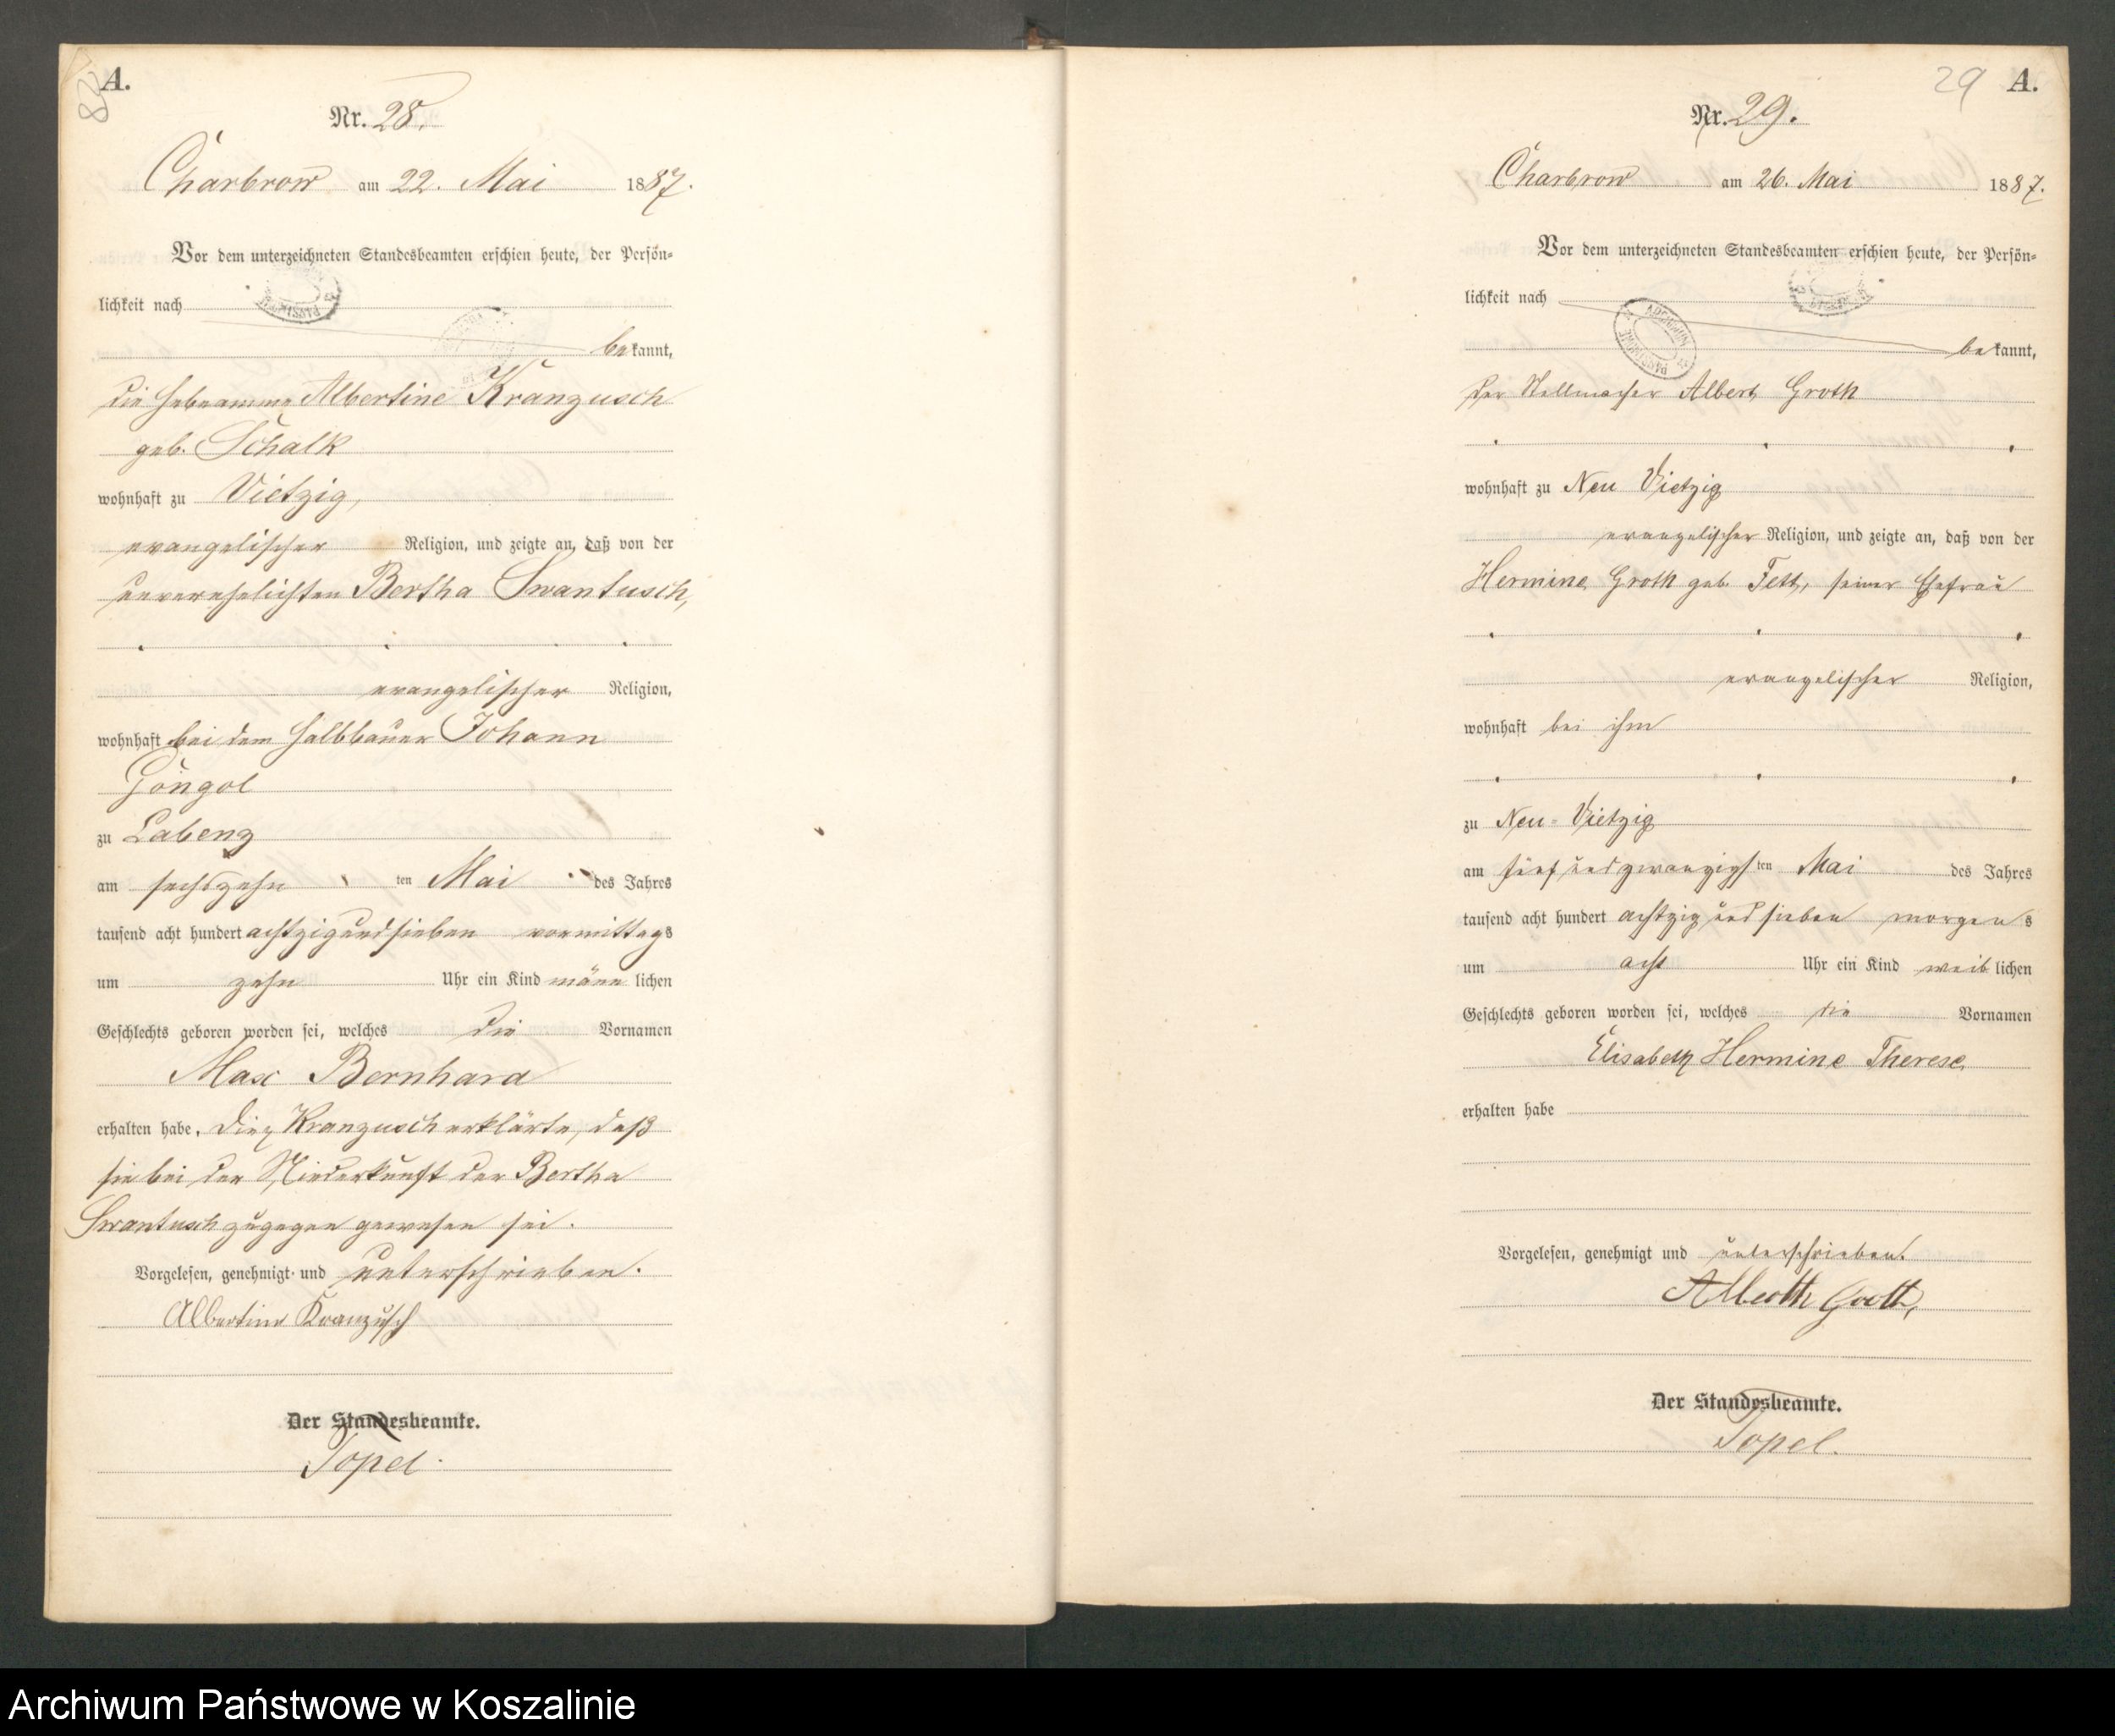 A.
28
Nr. 28.
Charbrow am 22. Mai 1887.
Vor dem unterzeichneten Standesbeamten erschien heute, der Persön-
lichkeit nach
bekannt,
die Hebeamme Albertine Kranzusch
geb. Schalk
wohnhaft zu Vietzig,
evangelischer Religion, und zeigte an, daß von der
unverehelichten Bertha Swantusch,
evangelischer Religion,
wohnhaft bei dem Halbbauer Johann
Göngol
zu Labenz
am sechszehn ten Mai des Jahres
tausend acht hundert achtzigundsieben vormittags
um zehn Uhr ein Kind männlichen
Geschlechts geboren worden sei, welches die Vornamen
Max Bernhard
erhalten habe. Die Kranzusch erklärte, daß
sie bei der Niederkunft der Bertha
Swantusch zugegen gewesen sei.
Vorgelesen, genehmigt und unterschrieben.
Albertine Kranzusch
Der Standesbeamte.
Topel.
29 A.
Nr. 29.
Charbrow am 26. Mai 1887.
Vor dem unterzeichneten Standesbeamten erschien heute, der Persön-
lichkeit nach
bekannt,
der Stellmacher Albert Groth
wohnhaft zu Neu Vietzig
evangelischer Religion, und zeigte an, daß von der
Hermine Groth geb. Fett, seiner Ehefrau
evangelischer Religion,
wohnhaft bei ihm
zu Neu-Vietzig
am fünfundzwanzigsten Mai des Jahres
tausend acht hundert achtzig und sieben morgens
um acht Uhr ein Kind weiblichen
Geschlechts geboren worden sei, welches die Vornamen
Elisabeth Hermine Therese
erhalten habe
Vorgelesen, genehmigt und unterschrieben.
Alberth Groth,
Der Standesbeamte.
Topel.
Archiwum Państwowe w Koszalinie